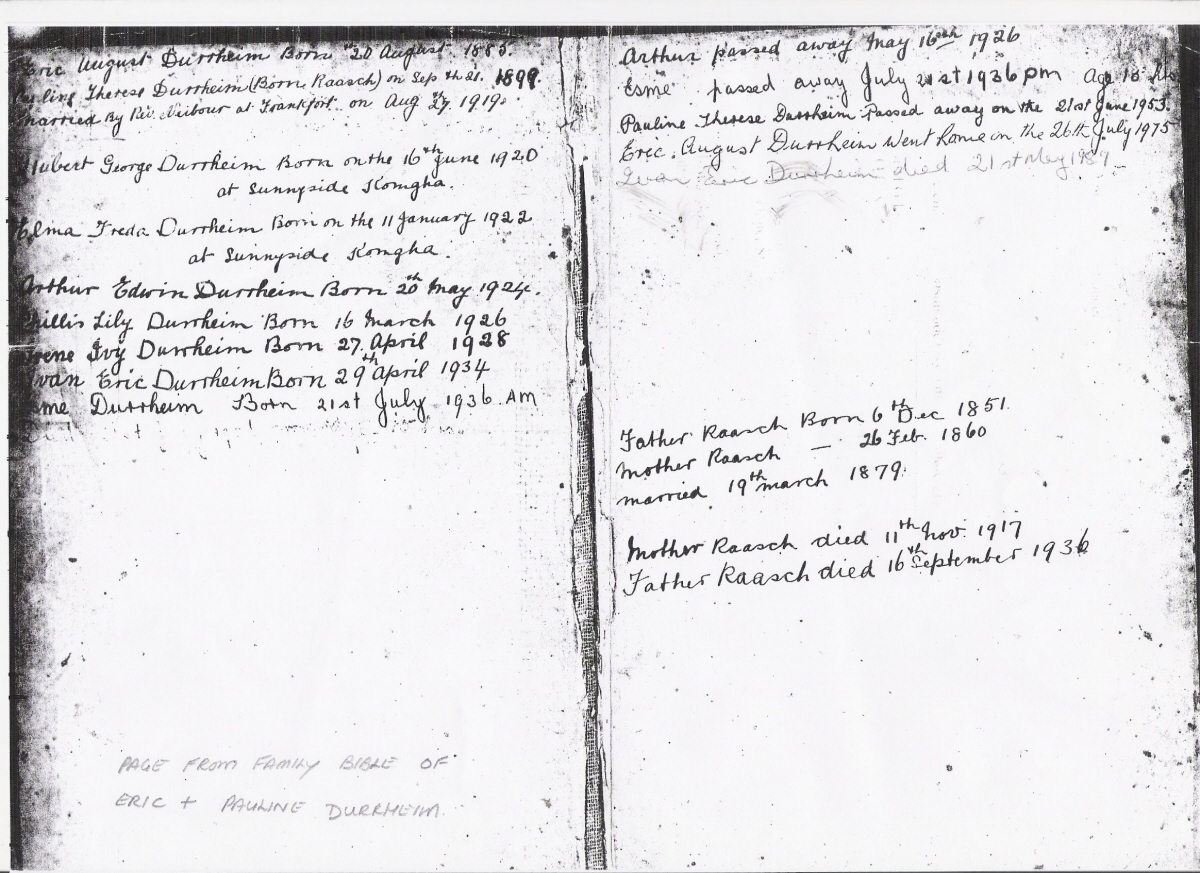 Eric August Durrheim Born 20 August 1885.
Pauline Therese Durrheim (Born Raasch) on Sep th 21. 1899
married By Rev. at Frankfort on Aug 27, 1919.
Hubert George Durrheim Born on the 16th June 1920
at Sunnyside Komgha.
Elma Freda Durrheim Born on the 11 January 1922
at Sunnyside Komgha.
Arthur Edwin Durrheim Born 20th May 1924.
Phillis Lily Durrheim Born 16 March 1926
Irene Ivy Durrheim Born 27. April 1928
Ivan Eric Durrheim Born 29th April 1934
Esme Durrheim Born 21st July 1936. AM
PAGE FROM FAMILY BIBLE OF
ERIC + PAULINE DURRHEIM.
Arthur passed away May 16th 1926
Esme passed away July 21st 1936 pm Age 18 hrs
Pauline Therese Durrheim Passed away on the 21st June 1953.
Eric. August Durrheim Went home on the 26th July 1975
Ivan Eric Durrheim died 21st May 1989
Father Raasch Born 6th Dec 1851.
Mother Raasch — 26 Feb. 1860
married 19th march 1879.
Mother Raasch died 11th Nov. 1917
Father Raasch died 16th September 1936